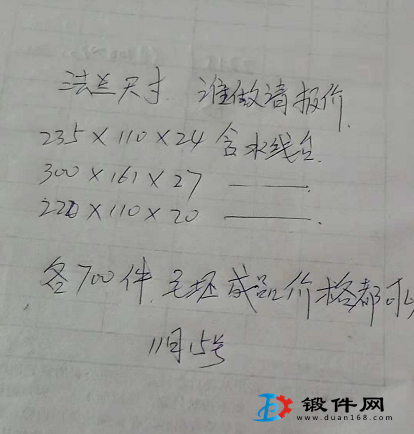 法兰尺寸 谁做请报价.
235×110×24 含水线台.
300×161×27 ———.
220×110×20 ———.
各700件 毛坯成品价格都可以
11月15号
锻件网
www.duan168.com